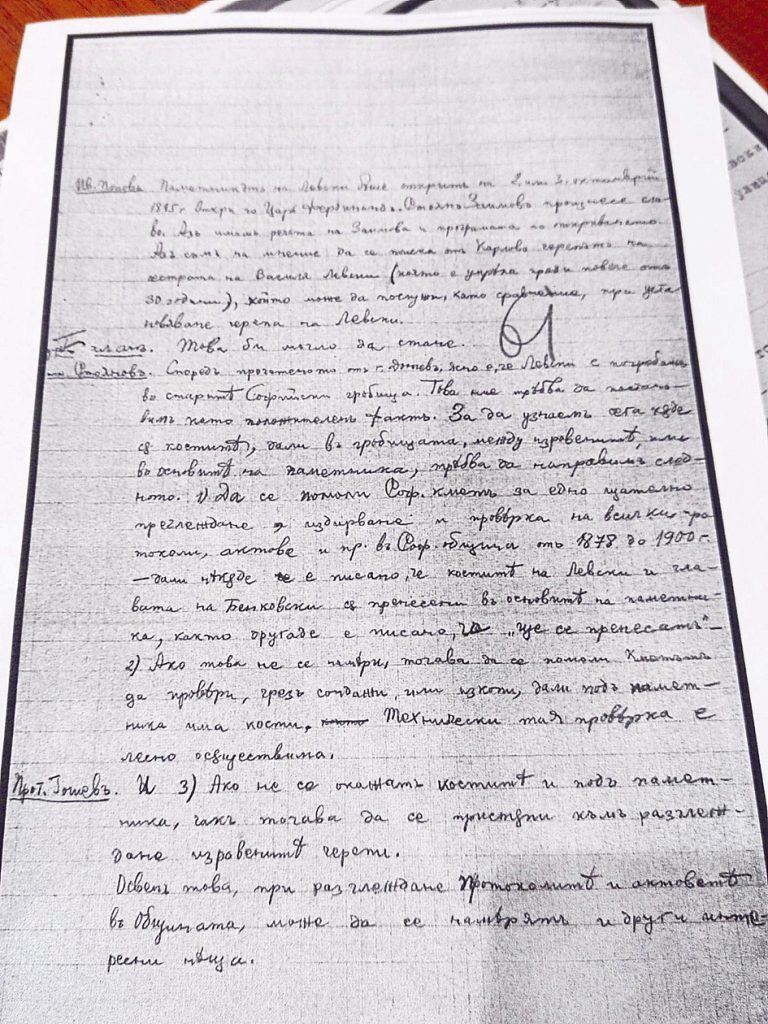 Ив. Попевъ. Паметникътъ на Левски бѣше открить на 2. или 3. октомврий
1895 г. Откри го Царь Фердинандъ. Стоянъ Заимовъ произнесе сло-
во. Азъ имамъ речьта на Заимова и програмата по откриването.
Азъ съмъ на мнение да се поиска отъ Карлово черепътъ на
сестрата на Василъ Левски (която е умрѣла преди повече отъ
30 години), който може да послужи, като сравнение, при уста-
новяване черепа на Левски.
член. Това би могло да стане.
Стояновъ. Споредъ прочетеното отъ г. ясно е, че Левски е погребанъ
въ старитѣ Софийски гробища. Това ние трѣбва да постано-
вимъ като положителенъ фактъ. За да узнаемъ сега кѫде
сѫ коститѣ, дали въ гробищата, между изровенитѣ, или
въ основитѣ на паметника, трѣбва да направимъ след-
ното. 1) Да се помоли Соф. кметъ за едно щателно
преглеждане, издирване и провѣрка на всички про-
токоли, актове и пр. въ Соф. община отъ 1878 до 1900 г.
— дали нѣкѫде не е писано, че коститѣ на Левски и гла-
вата на Бенковски сѫ пренесени въ основитѣ на паметни-
ка, както другаде е писано, че „ще се пренесатъ“ —
2) Ако това не се намѣри, тогава да се помоли Кметътъ
да провѣри, чрезъ сондажи, или изкопи, дали подъ памет-
ника има кости. Технически тая провѣрка е
лесно осѫществима.
Прот. Гошевъ. И 3) Ако не се окажатъ коститѣ и подъ памет-
ника, чакъ тогава да се пристѫпи къмъ разглеж-
дане изровенитѣ черепи.
Освенъ това, при разглеждане протоколитѣ и актоветѣ
въ Общината, може да се намѣрятъ и други инте-
ресни нѣща.